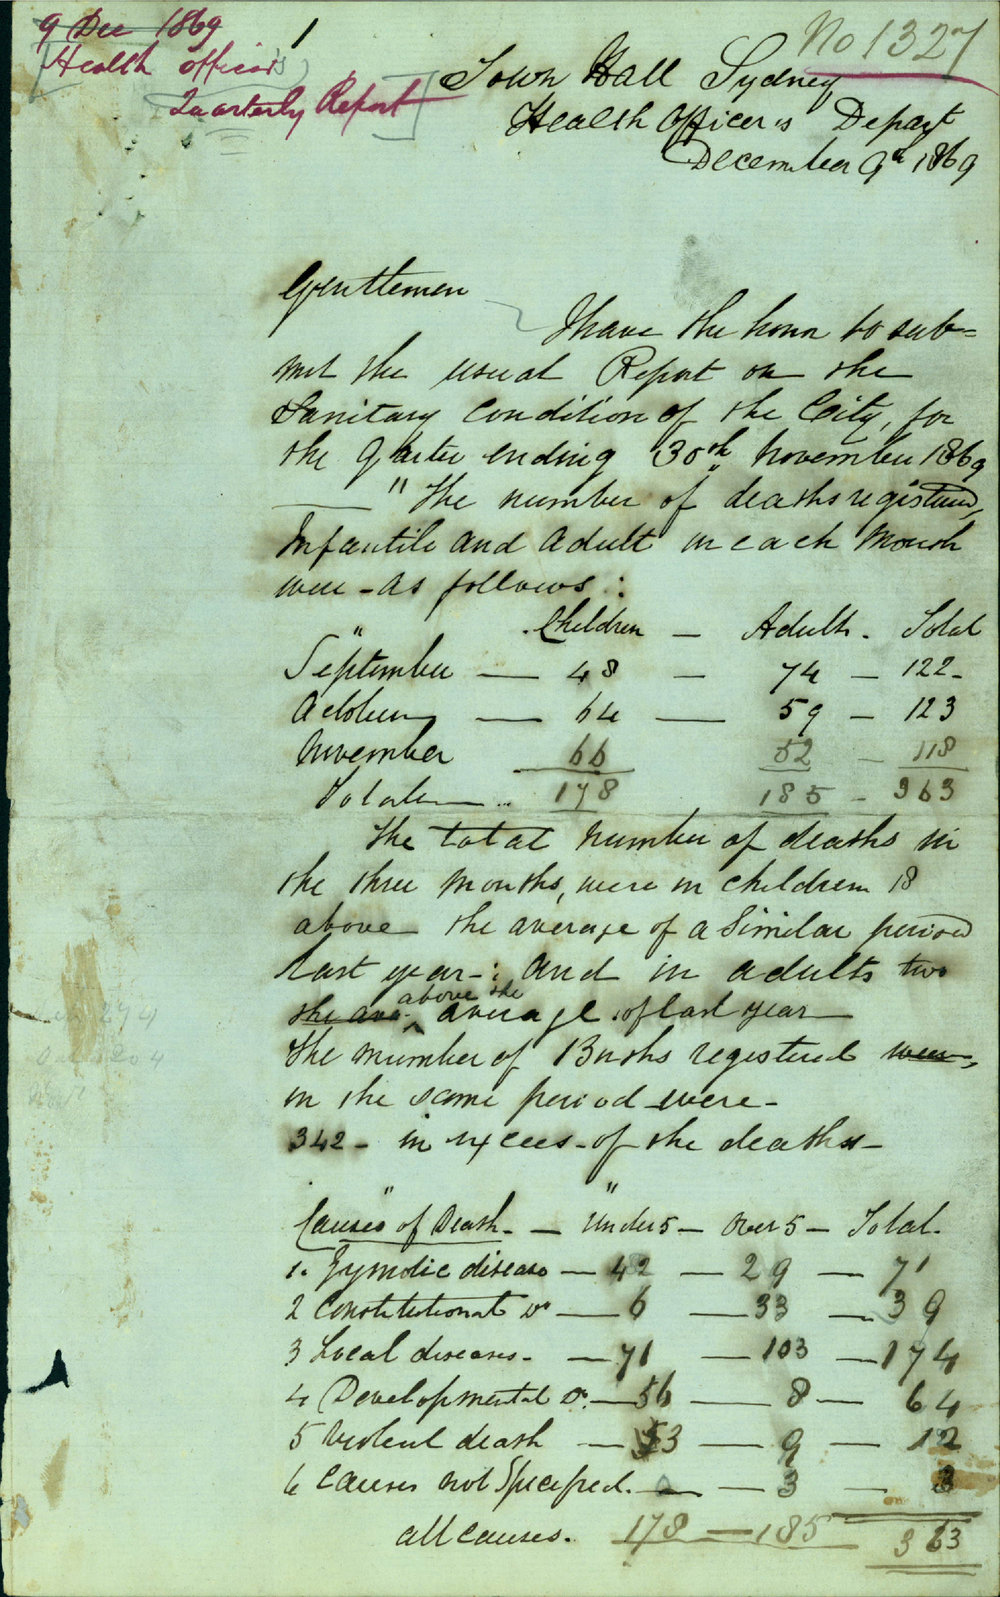 9 Dec 1869
Health officer's
Quarterly Report
No 1327
Town Hall Sydney
Health Officer's Depart
December 9th 1869
Gentlemen
I have the honor to sub=
mit the usual Report on the
Sanitary Condition of the City, for
the Quarter ending 30th November 1869
"The number of deaths registered,
Infantile and Adult in each Month
were - as follows:
Children — Adults - Total
September — 48 — 74 — 122-
October — 64 — 59 — 123
November 66 52 - 118
Totals — 178 185 - 363
The total number of deaths in
the three months, were in children 18
above the average of a Similar period
last year -: and in adults two
the ave- above the average of last year
The number of Births registered were,
in the same period were -
342 - in excess - of the deaths -
Causes of Death - — Under 5 — Over 5 — Total.
1. Zymotic disease — 42 — 29 — 71
2 Constitutional Do — 6 — 33 — 39
3 Local diseases - — 71 — 103 — 174
4 Developmental Do. — 56 — 8 — 64
5 Violent death — 3 — 9 — 12
6 Causes not Specified. — — 3 — 3
all causes. 178 — 185 363